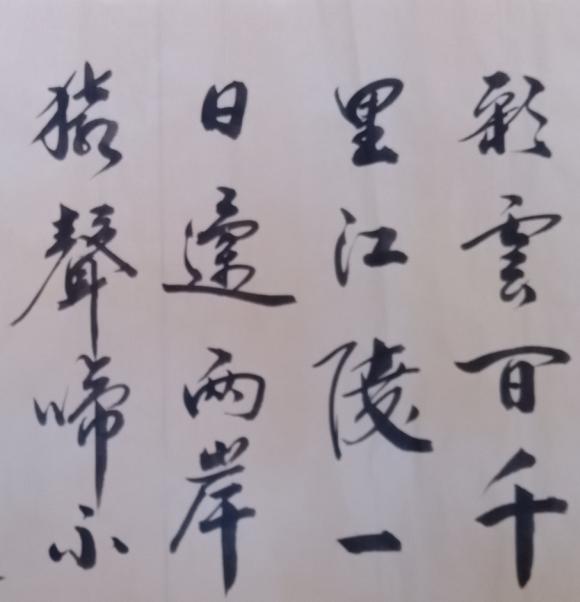 彩雲間千
里江陵一
日還兩岸
猿聲啼不